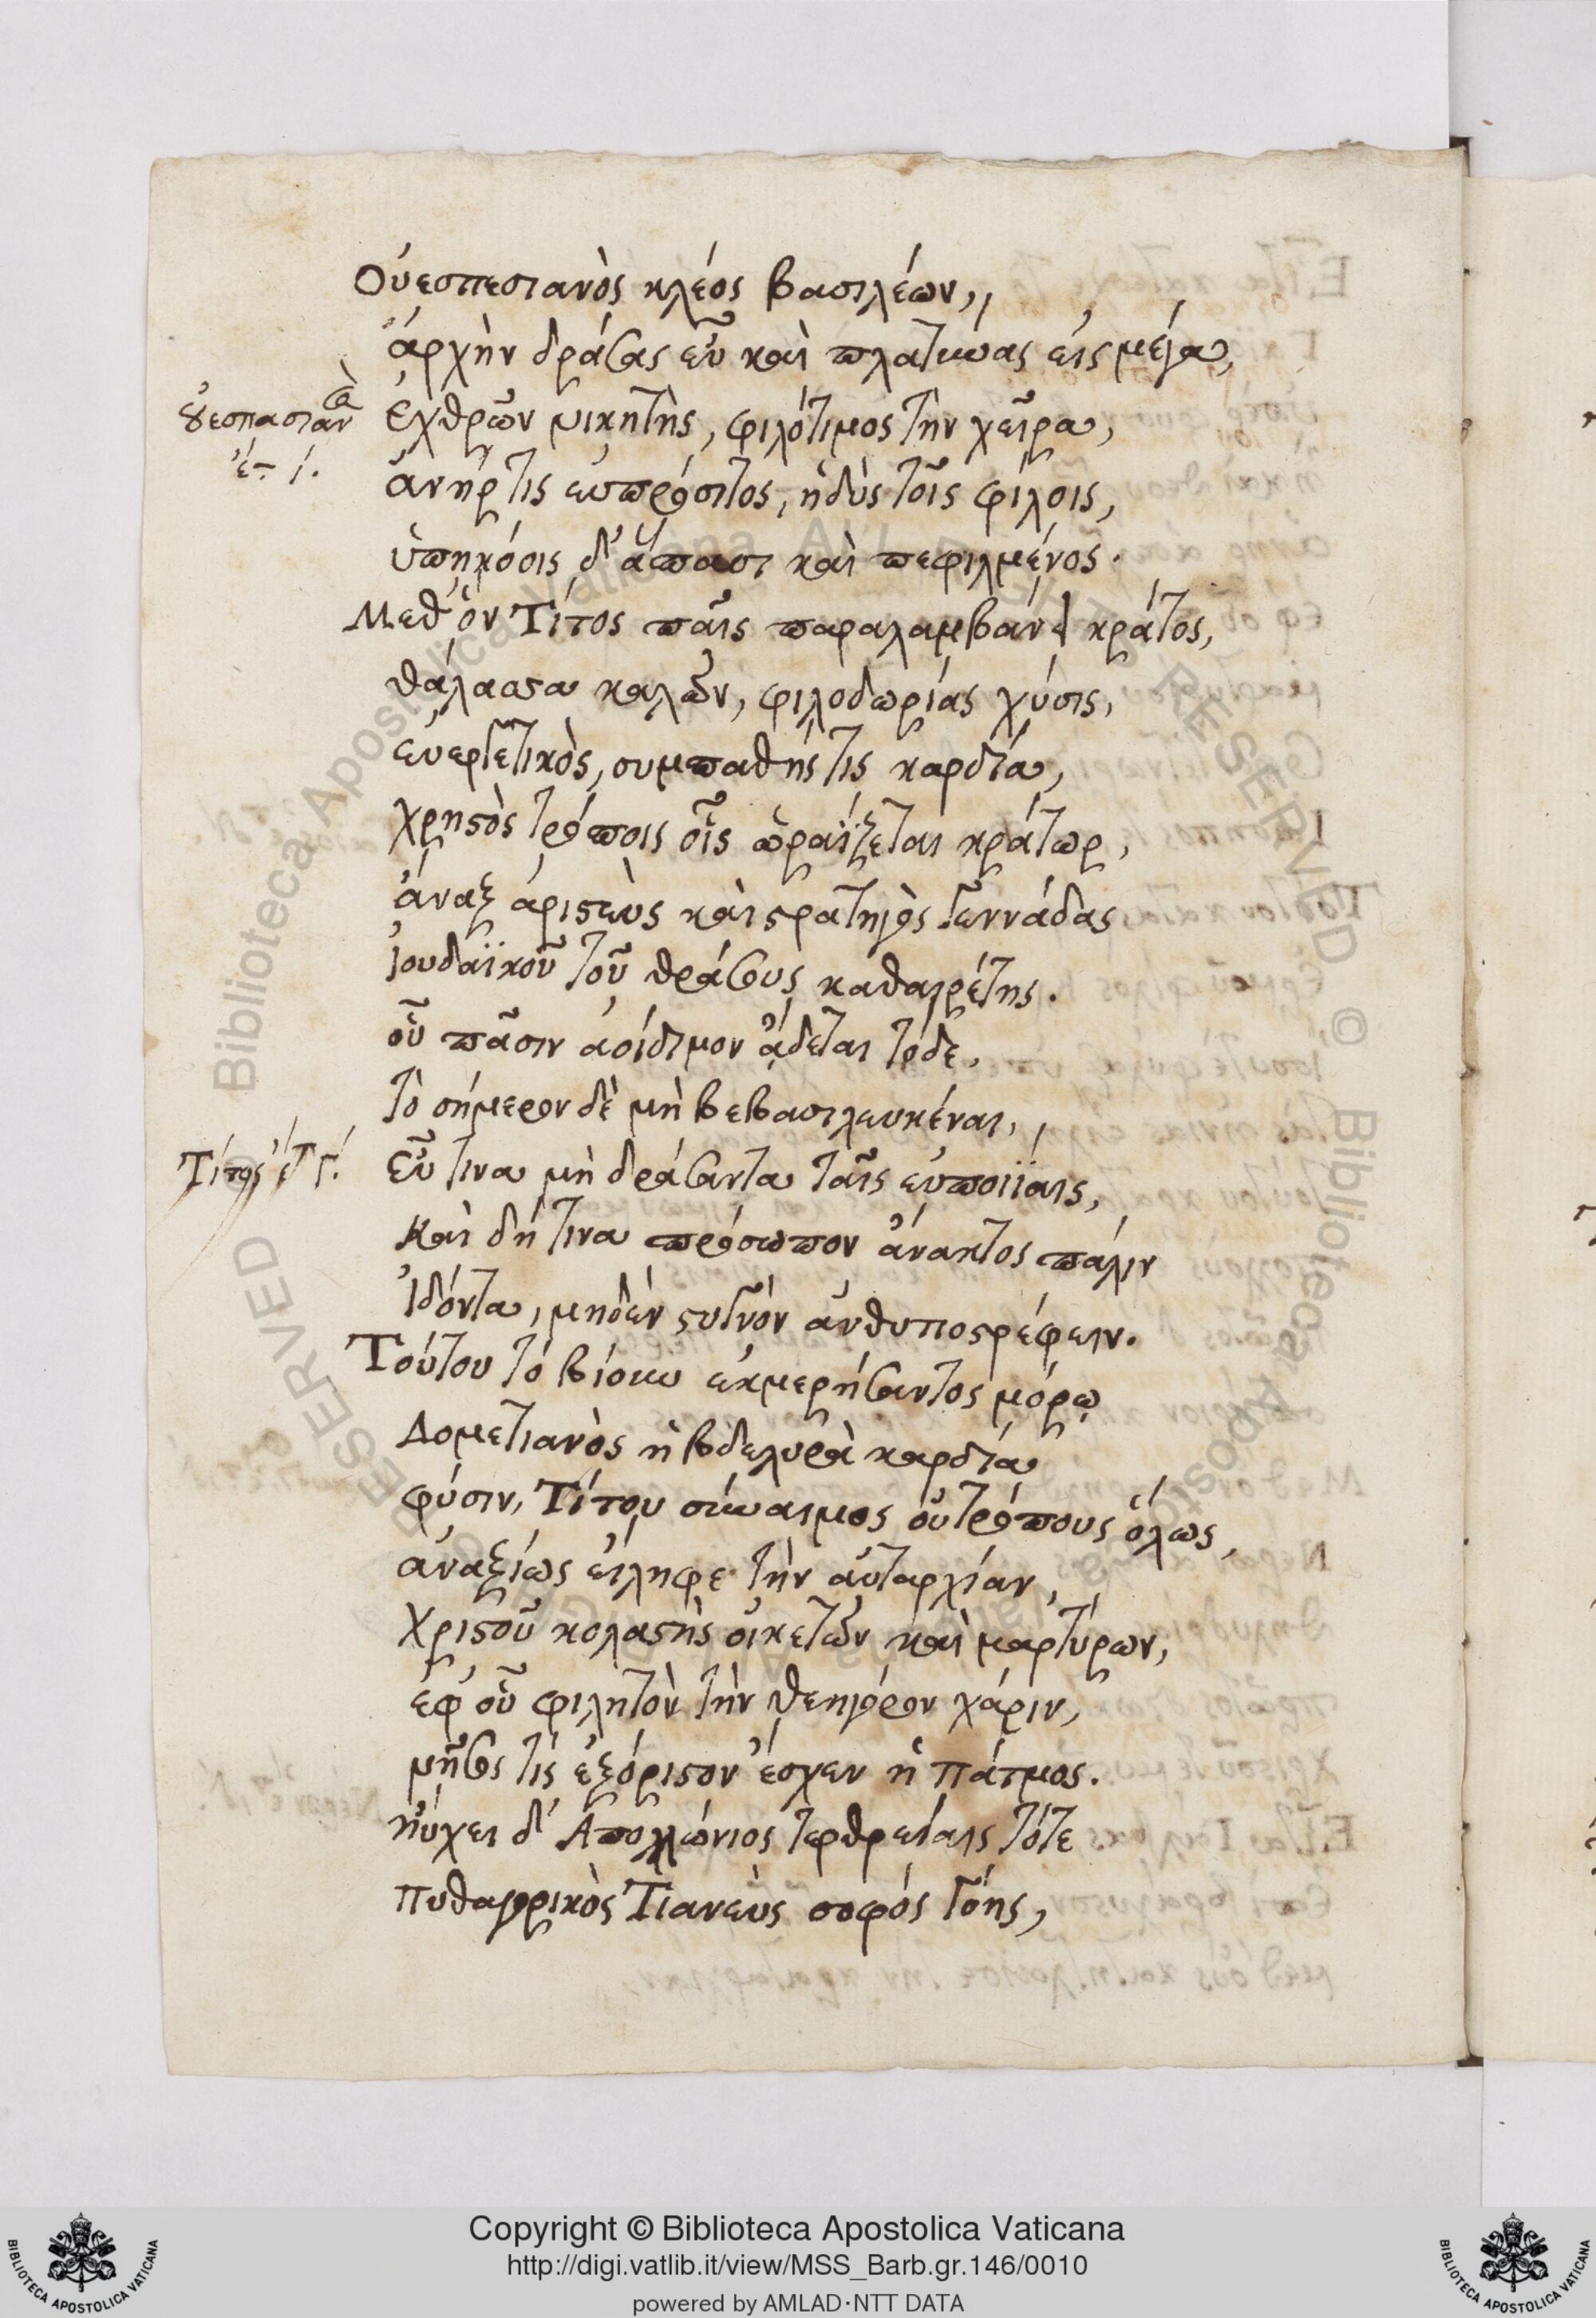 Οὐεσπεσιανὸς κλέος βασιλέων,
ἀρχὴν δράσας εὖ καὶ πλατύνας εἰς μέγα,
οὐεσπασιαν
ἔτ. ι.
ἐχθρῶν νικητὴς, φιλότιμος τὴν χεῖρα,
ἀνήρ τις εὐπρόσιτος, ἡδὺς τοῖς φίλοις,
ὑπηκόοις δ' ἅπασι καὶ πεφιλμένος.
Μεθ' ὃν Τίτος παῖς παραλαμβάνει κράτος,
θάλασσα καλῶν, φιλοδωρίας χύσις,
εὐεργετικὸς, συμπαθής τις καρδία,
χρηστὸς τρόποις οἷς ὡραΐζεται κράτωρ,
ἄναξ ἀριστεὺς καὶ στρατηγὸς γεννάδας
Ἰουδαϊκοῦ τοῦ θράσους καθαιρέτης.
οὗ πᾶσιν ἀοίδιμον ᾄδεται τόδε,
τὸ σήμερον δὲ μὴ βεβασιλευκέναι,
Τίτος ἔτ γ.
εὖ τινα μὴ δράσαντα ταῖς εὐποιΐαις,
καὶ δή τινα πρόσωπον ἄνακτος πάλιν
ἰδόντα, μηδὲν στυγνὸν ἀνθυποστρέφειν.
Τούτου τὸ βίου ἐκμερήσαντος μόρῳ
Δομετιανὸς ἡ βδελυρὰ καρδία
φύσιν, Τίτου σύναιμος οὐ τρόπους ὅλως,
ἀναξίως εἴληφε τὴν αὐταρχίαν,
Χριστοῦ κολαστὴς οἰκετῶν καὶ μαρτύρων,
ἐφ' οὗ φιλητὸν τὴν θεηγόρον χάριν,
μῆσις τίς ἐξόριστον ἔσχεν ἡ Πάτμος.
ηὔχει δ' Ἀπολλώνιος τερθρείαις τότε
πυθαγορικὸς Τιανεὺς σοφός γόης,
Copyright © Biblioteca Apostolica Vaticana
http://digi.vatlib.it/view/MSS_Barb.gr.146/0010
powered by AMLAD·NTT DATA